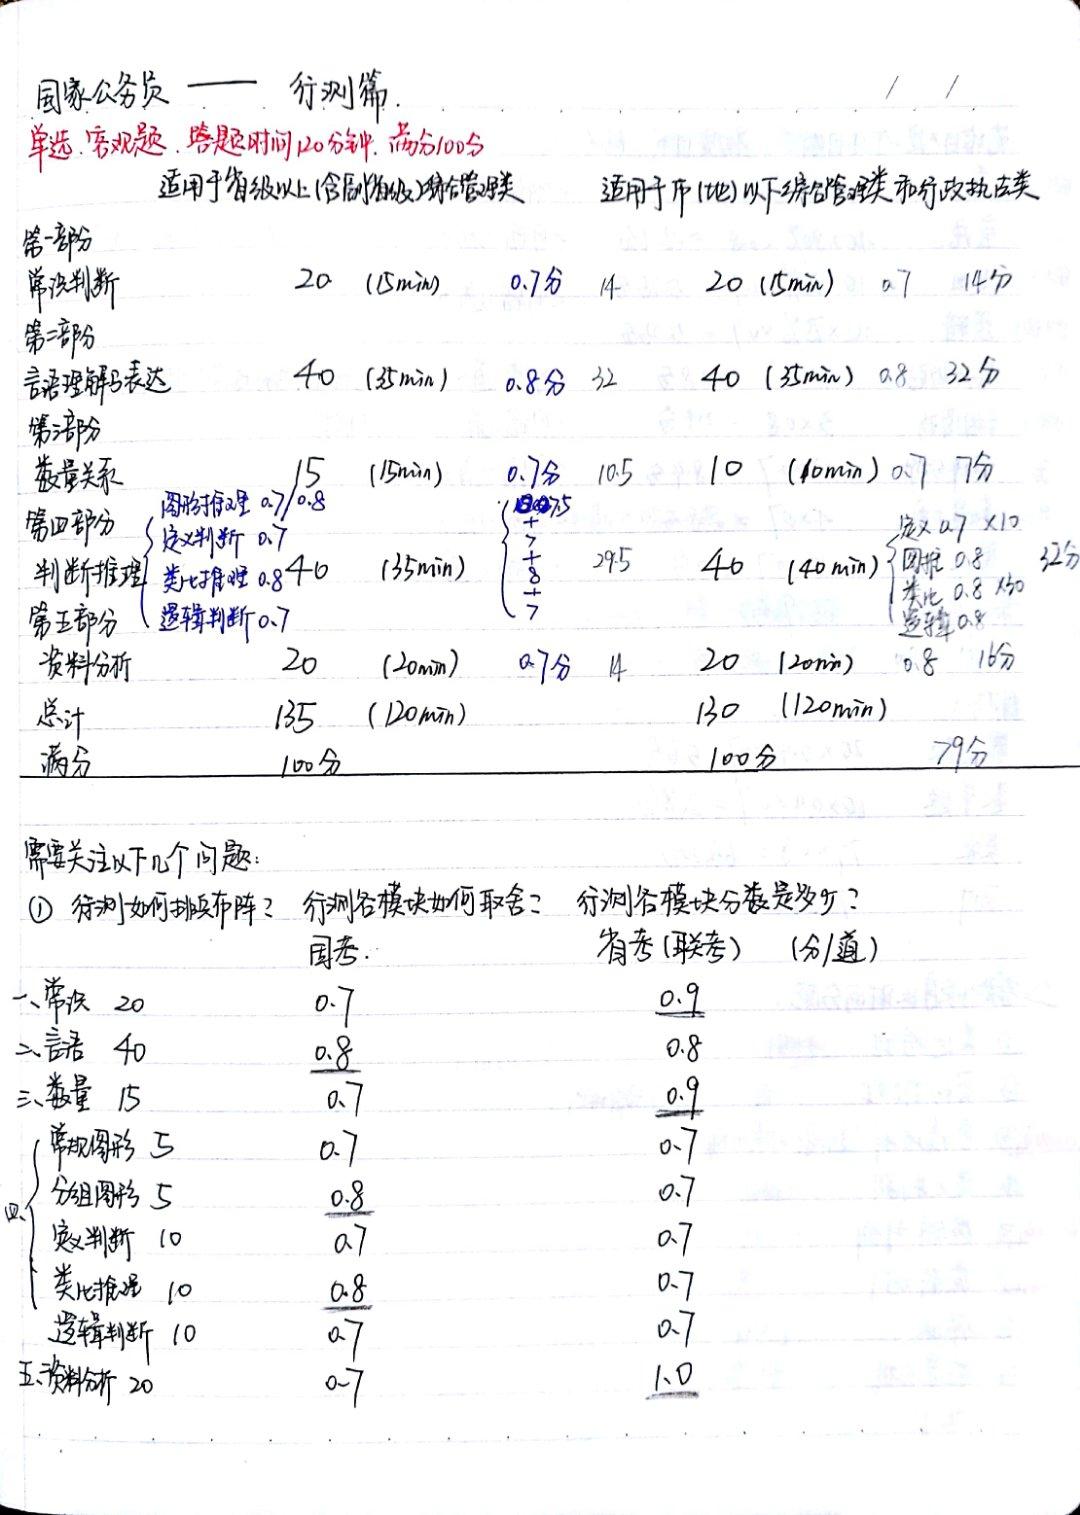 国家公务员 —— 行测篇.
/ /
单选.客观题.答题时间120分钟.满分100分
适用于省级以上(含副省级)综合管理类 适用于市(地)以下综合管理类和行政执法类
第一部分
常识判断 20 (15min) 0.7分 14 20 (15min) 0.7 14分
第二部分
言语理解与表达 40 (35min) 0.8分 32 40 (35min) 0.8 32分
第三部分
数量关系 15 (15min) 0.7分 10.5 10 (10min) 0.7 7分
第四部分
图形推理 0.7/0.8
定义判断 0.7
判断推理 类比推理 0.8 40 (35min) 7.5+7+8+7 29.5 40 (40min) 32分
逻辑判断 0.7
定义 0.7 ×10
图推 0.8
类比 0.8 ×30
逻辑 0.8
第五部分
资料分析 20 (20min) 0.7分 14 20 (20min) 0.8 16分
总计 135 (120min) 130 (120min)
满分 100分 100分 79分
需要关注以下几个问题:
① 行测如何排兵布阵? 行测各模块如何取舍? 行测各模块分数是多少?
国考. 省考(联考) (分/道)
一、常识 20 0.7 0.9
二、言语 40 0.8 0.8
三、数量 15 0.7 0.9
四、常规图形 5 0.7 0.7
分组图形 5 0.8 0.7
定义判断 10 0.7 0.7
类比推理 10 0.8 0.7
逻辑判断 10 0.7 0.7
五、资料分析 20 0.7 1.0